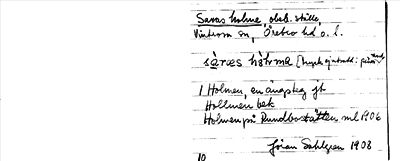 Saras holme, obeb. ställe,
Vintrosa sn, Örebro hd, ö. l.
sàræs hòlrma
1 Holmen, en ängsteg jt
Hollmen bek
Holmen på Rundbostätten ml 1906
Jöran Sahlgren 1908
10